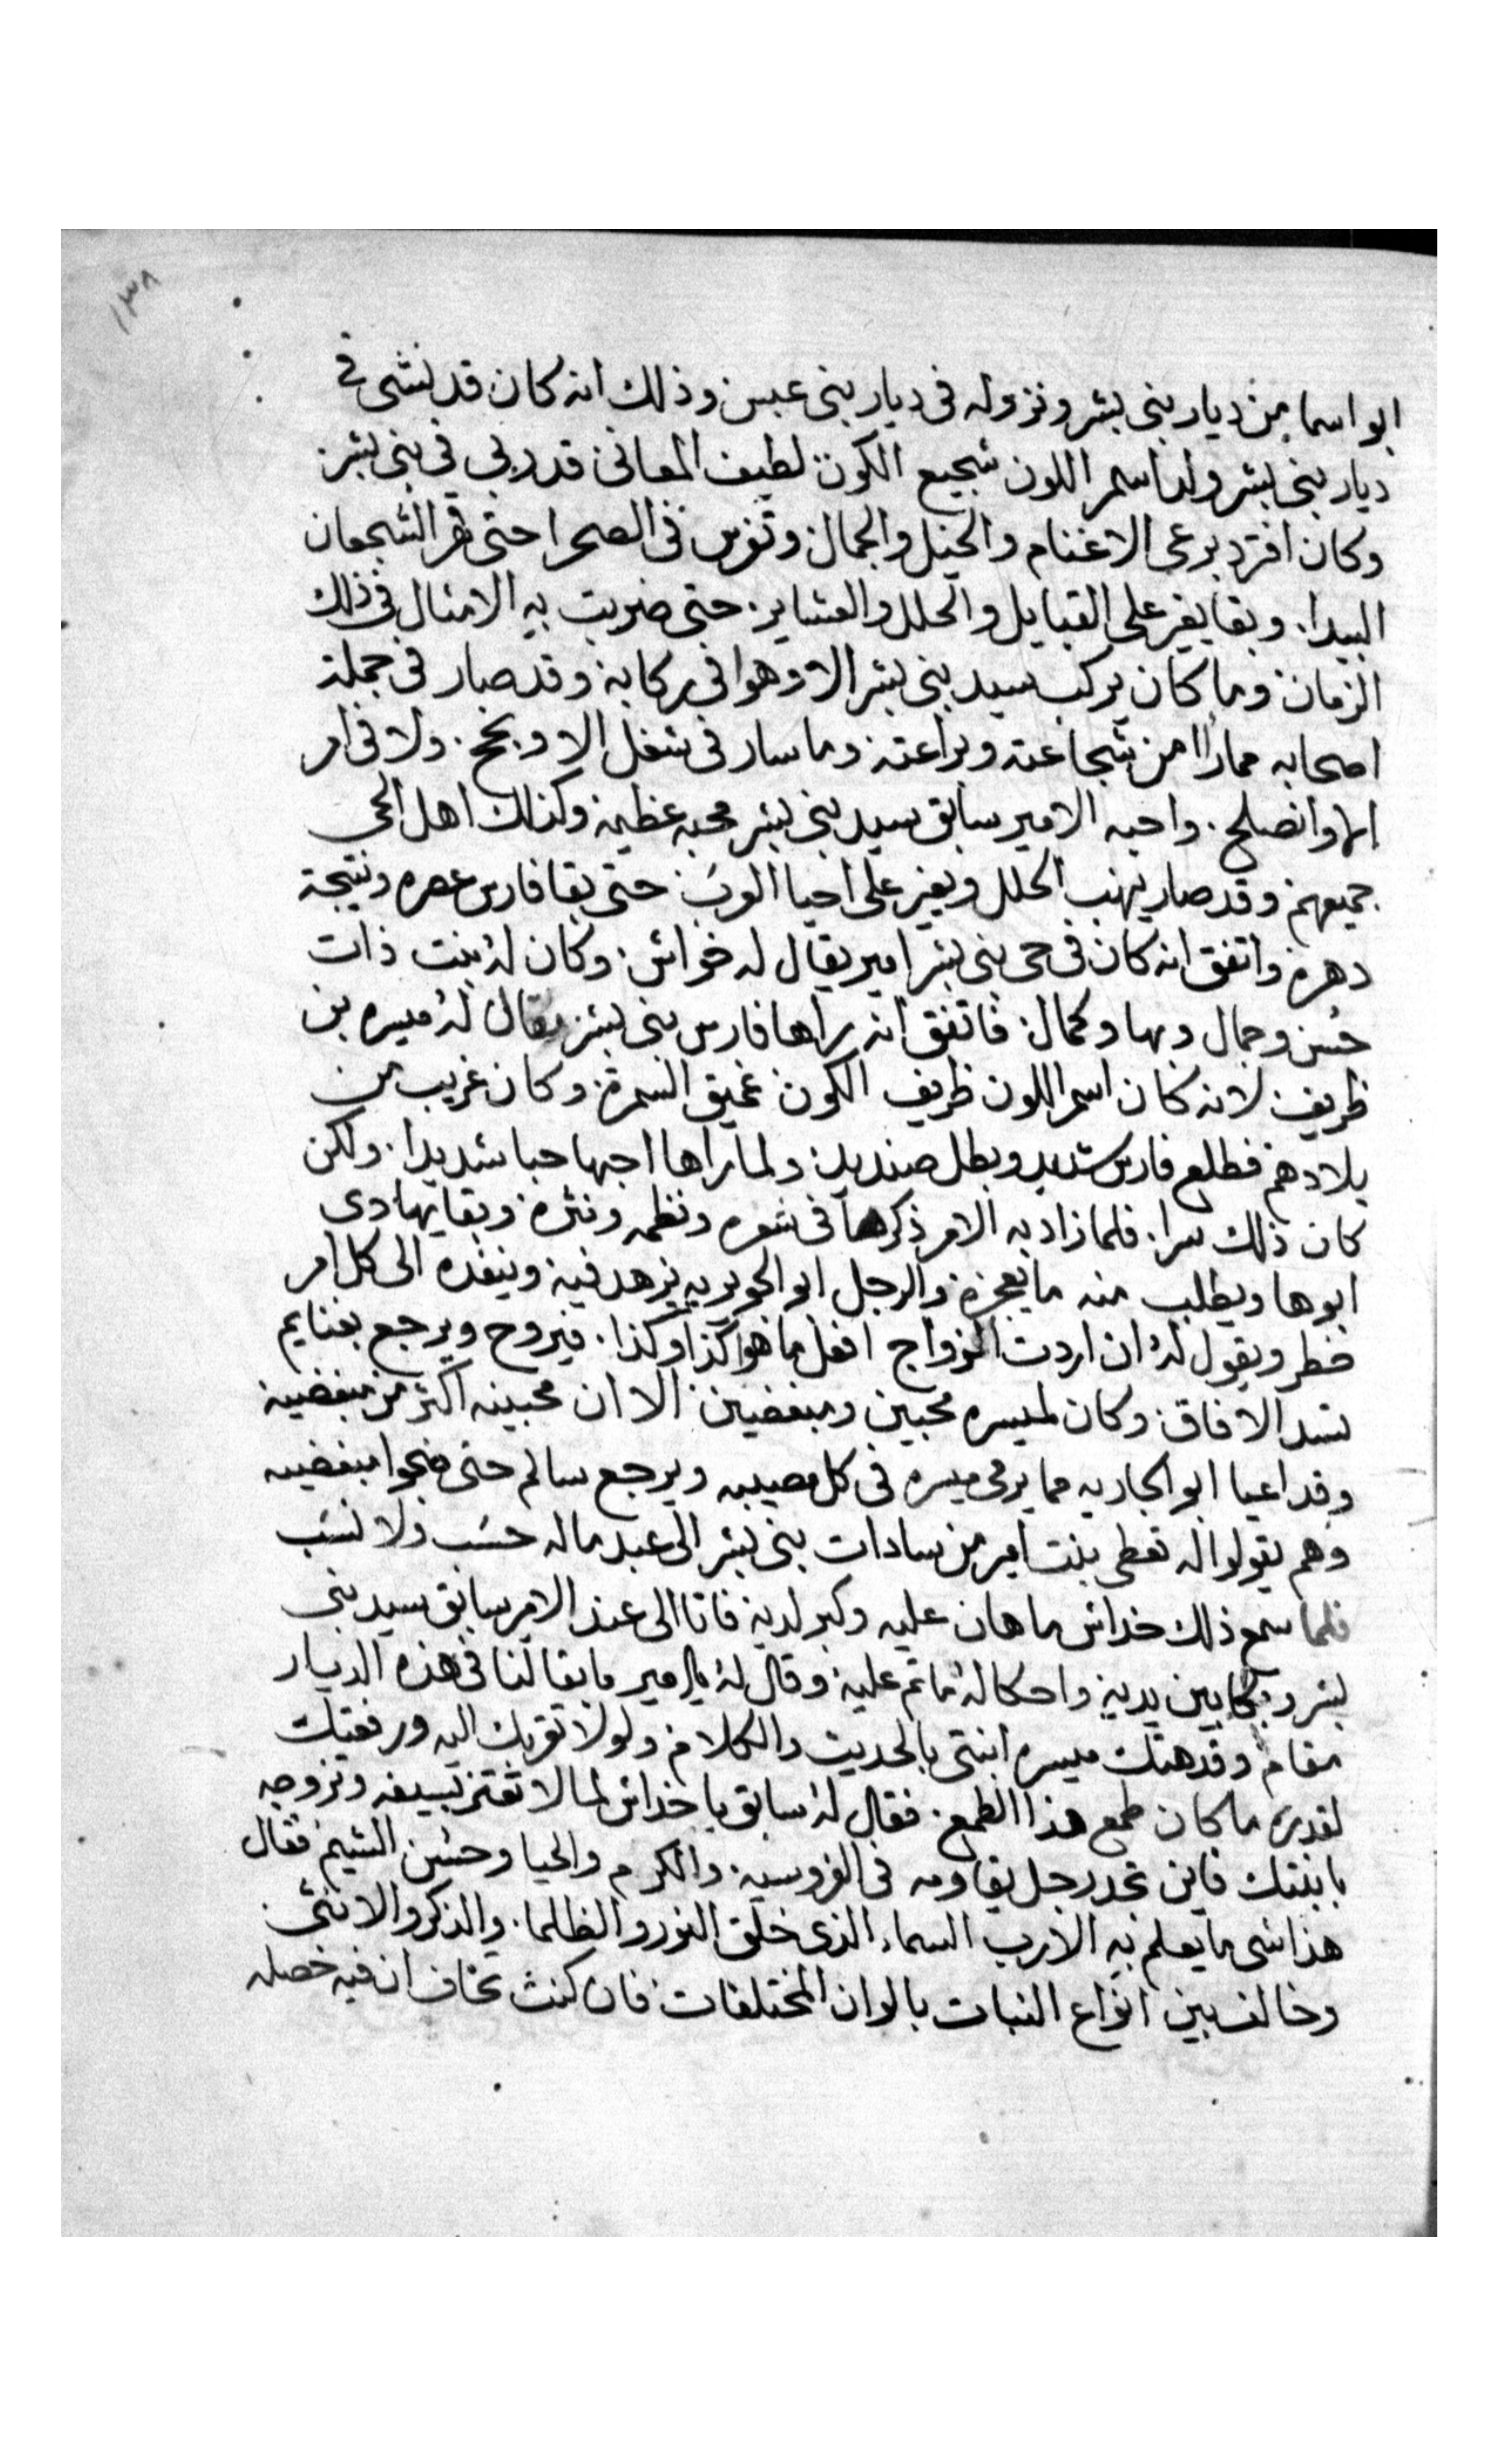 ١٣٨
ابو اسما من ديار بنى بشر ونزوله فى ديار بنى عبس وذلك انه كان قد نشى فى
ديار بنى بشر ولد اسمر اللون شجيع الكون لطيف المعانى قد ربى فى بنى بشر
وكان افترد برعى الاغنام والخيل والجمال وتفرس فى الصحرا حتى قهر الشجعان
البيدا. وبقا يغير على القبايل والحلل والعشاير. حتى ضربت به الامثال فى ذلك
الزمان وما كان يركب سيد بنى بشر الا وهوا فى ركابه وقد صار فى جملة
اصحابه مما راا من شجاعته وبراعته وما سار فى شغل الا ونجح. ولا فى امر
الا وانصلح. واحبه الامير سابق سيد بنى بشر محبه عظيمه وكذلك اهل الحى
جميعهم وقد صار ينهب الحلل ويغير على احيا العرب حتى بقا فارس عصره ونتيجة
دهره واتفق انه كان فى حى بنى بشر امير يقال له خداش. وكان له بنت ذات
حسن وجمال وبها وكمال. فاتفق انه يراها فارس بنى بشر يقال له ميسره بن
ظريف لانه كان اسمر اللون ظريف الكون غميق السمرة وكان غريب من
بلادهم فطلع فارس شديد وبطل صنديد. ولما راها احبها حبا شديدا. ولكن
كان ذلك سرا. فلما زاد به الامر ذكرها فى شعره ونظمه ونثره وبقا يهادى
ابوها ويطلب منه ما يعجزه والرجل ابو الجويريه يزهد فيه وينفده الى كل امر
خطر ويقول له ان اردت الزواج افعل ما هوا كذا وكذا. فيروح ويرجع بغنايم
تسد الافاق. وكان لميسره محبين ومبغضين الا ان محبينه اكثر من مبغضينه
وقد اعيا ابو الجاريه مما يرمى ميسره فى كل مصيبه ويرجع سالم حتى ضجوا مبغضيه
وهم يقولوا له تعطى بنت امير من سادات بنى بشر الى عبد ماله حسب ولا نسب
فلما سمع ذلك خداش ما هان عليه وكبر لديه فاتا الى عند الامير سابق سيد بنى
بشر وبكا بين يديه واحكا له ما تم عليه وقال له يا امير ما بقا لنا فى هذه الديار
مقام وقد هتك ميسره ابنتى بالحديث والكلام ولولا تقربك اليه ورفعتك
لقدره ما كان طمع هذا الطمع. فقال له سابق يا خداش لما لا تفتخر بسيفه وتزوجه
بابنتك فاين تجد رجل يقاومه فى الفروسيه. والكرم والحيا وحسن الشيم فقال
هذا شى ما يعلم به الا رب السماء الذى خلق النور والظلما. والذكر والانثى
وخالف بين انواع النبات بالوان المختلفات فان كنت تخاف ان فيه خصله